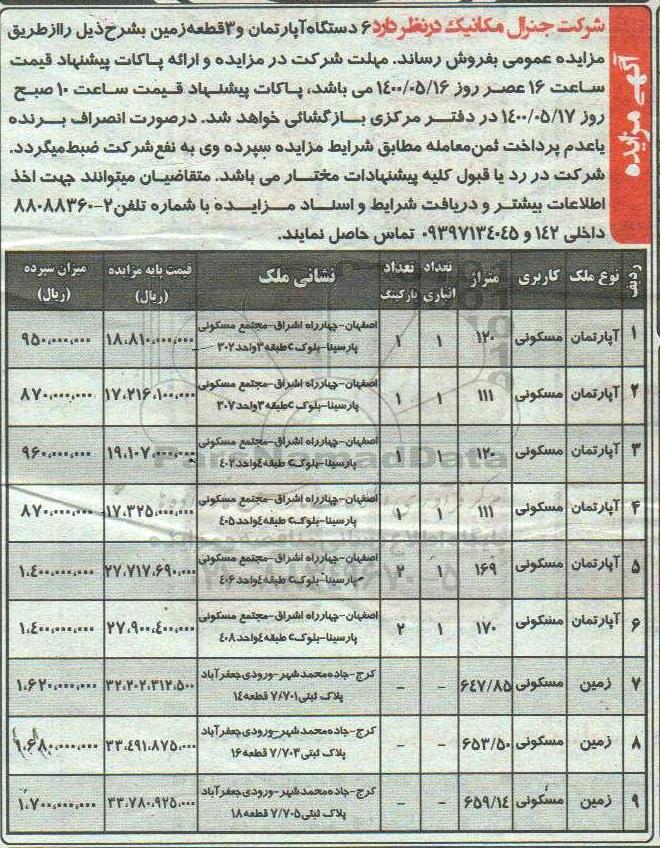 آگهی مزایده
شرکت جنرال مکانیک درنظر دارد ۶ دستگاه آپارتمان و ۳ قطعه زمین بشرح ذیل را از طریق
مزایده عمومی بفروش رساند. مهلت شرکت در مزایده و ارائه پاکات پیشنهاد قیمت
ساعت ۱۶ عصر روز ۱۴۰۰/۰۵/۱۶ می باشد، پاکات پیشنهاد قیمت ساعت ۱۰ صبح
روز ۱۴۰۰/۰۵/۱۷ در دفتر مرکزی بازگشائی خواهد شد. درصورت انصراف برنده
یاعدم پرداخت ثمن معامله مطابق شرایط مزایده سپرده وی به نفع شرکت ضبط میگردد.
شرکت در رد یا قبول کلیه پیشنهادات مختار می باشد. متقاضیان میتوانند جهت اخذ
اطلاعات بیشتر و دریافت شرایط و اسناد مزایده با شماره تلفن ۲-۸۸۰۸۸۳۶۰
داخلی ۱۴۲ و ۰۹۳۹۷۱۳۴۰۴۵ تماس حاصل نمایند.
ردیف نوع ملک کاربری متراژ تعداد انباری تعداد پارکینگ نشانی ملک قیمت پایه مزایده (ریال) میزان سپرده (ریال)
۱ آپارتمان مسکونی ۱۲۰ ۱ ۱ اصفهان-چهارراه اشراق-مجتمع مسکونی پارسینا-بلوک c طبقه ۳ واحد ۳۰۲ ۱۸،۸۱۰،۰۰۰،۰۰۰ ۹۵۰،۰۰۰،۰۰۰
۲ آپارتمان مسکونی ۱۱۱ ۱ ۱ اصفهان-چهارراه اشراق-مجتمع مسکونی پارسینا-بلوک c طبقه ۳ واحد ۳۰۷ ۱۷،۲۱۶،۱۰۰،۰۰۰ ۸۷۰،۰۰۰،۰۰۰
۳ آپارتمان مسکونی ۱۲۰ ۱ ۱ اصفهان-چهارراه اشراق-مجتمع مسکونی پارسینا-بلوک c طبقه ۴ واحد ۴۰۲ ۱۹،۱۰۷،۰۰۰،۰۰۰ ۹۶۰،۰۰۰،۰۰۰
۴ آپارتمان مسکونی ۱۱۱ ۱ ۱ اصفهان-چهارراه اشراق-مجتمع مسکونی پارسینا-بلوک c طبقه ۴ واحد ۴۰۵ ۱۷،۳۲۵،۰۰۰،۰۰۰ ۸۷۰،۰۰۰،۰۰۰
۵ آپارتمان مسکونی ۱۶۹ ۱ ۲ اصفهان-چهارراه اشراق-مجتمع مسکونی پارسینا-بلوک c طبقه ۴ واحد ۴۰۶ ۲۷،۷۱۷،۶۹۰،۰۰۰ ۱،۴۰۰،۰۰۰،۰۰۰
۶ آپارتمان مسکونی ۱۷۰ ۱ ۲ اصفهان-چهارراه اشراق-مجتمع مسکونی پارسینا-بلوک c طبقه ۴ واحد ۴۰۸ ۲۷،۹۰۰،۴۰۰،۰۰۰ ۱،۴۰۰،۰۰۰،۰۰۰
۷ زمین مسکونی ۶۴۷/۸۵ - - کرج-جاده محمدشهر-ورودی جعفرآباد پلاک ثبتی ۷/۷۰۱ قطعه ۱۴ ۳۲،۲۰۲،۳۱۲،۵۰۰ ۱،۶۲۰،۰۰۰،۰۰۰
۸ زمین مسکونی ۶۵۳/۵۰ - - کرج-جاده محمدشهر-ورودی جعفرآباد پلاک ثبتی ۷/۷۰۳ قطعه ۱۶ ۳۳،۴۹۱،۸۷۵،۰۰۰ ۱،۶۸۰،۰۰۰،۰۰۰
۹ زمین مسکونی ۶۵۹/۱۴ - - کرج-جاده محمدشهر-ورودی جعفرآباد پلاک ثبتی ۷/۷۰۵ قطعه ۱۸ ۳۳،۷۸۰،۹۲۵،۰۰۰ ۱،۷۰۰،۰۰۰،۰۰۰
ParsNamadData